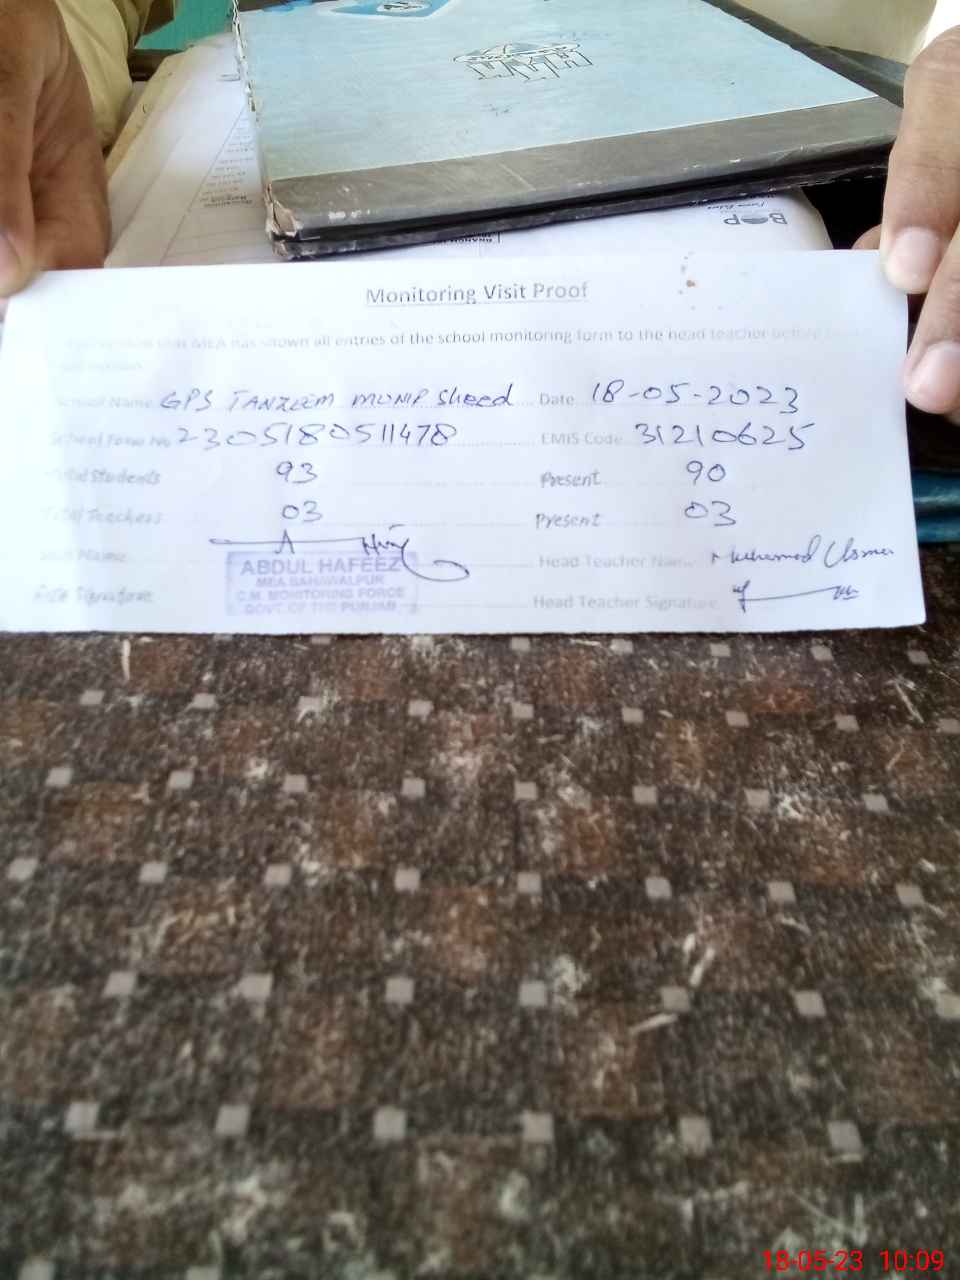 BOP
Monitoring Visit Proof
that MEA has shown all entries of the school monitoring form to the head teacher before
School Name GPS TANZEEM MUNIR Sheed Date 18-05-2023
School Form No 2305180511478 EMIS Code 31210625
Total Students 93 Present 90
Total Teachers 03 Present 03
Name Head Teacher Name Muhamad Usman
ABDUL HAFEEZ
MEA BAHAWALPUR
C.M. MONITORING FORCE
GOVT. OF THE PUNJAB
MEA Signature Head Teacher Signature
18-05-23 10:09